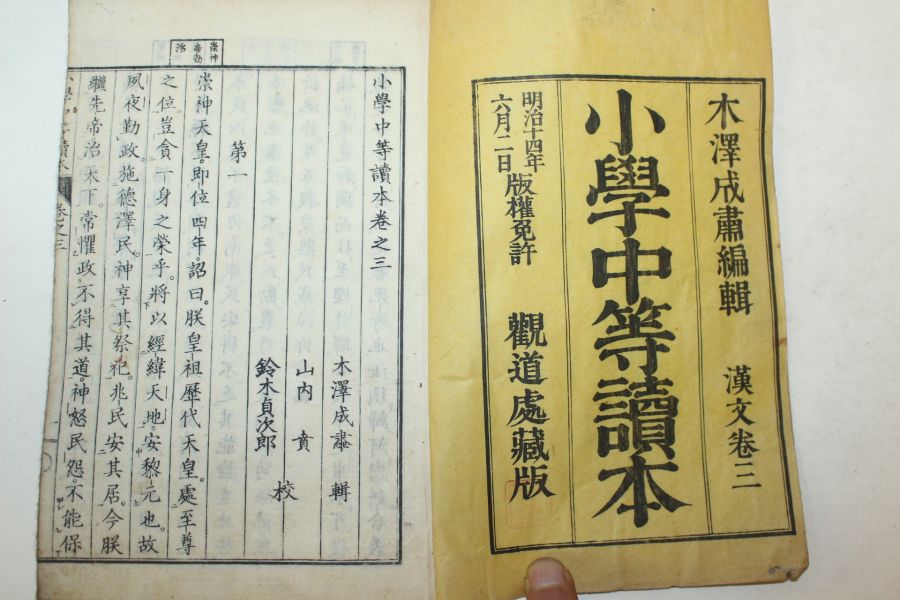 木澤成肅編輯 漢文卷三
小學中等讀本
明治十四年
六月二日版權免許 觀道處藏版
崇神
帝勅
治
小學中等讀本卷之三
木澤成肅 輯
山内 賁
鈴木貞次郎 校
第一
崇神天皇。即位四年。詔曰。朕皇祖歷代天皇。處至尊
之位。豈貪一身之榮乎。將以經緯天地。安黎元也。故
夙夜勤政。施德澤民。神享其祭祀。兆民安其居。今朕
繼先帝治天下。常懼政不得其道。神怒民怨。不能保
讀本 卷之三